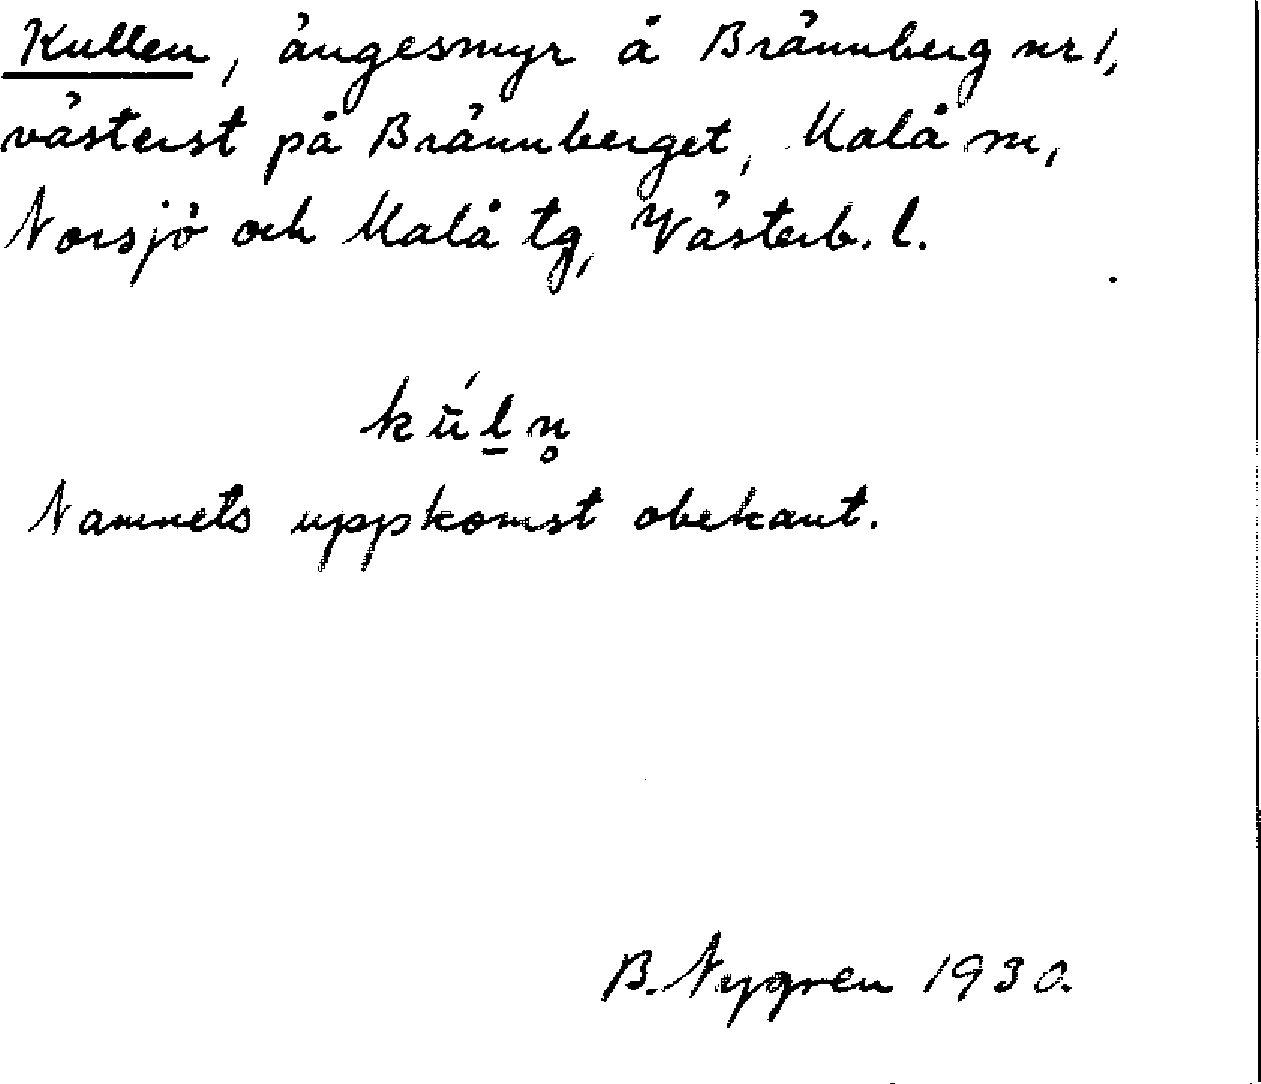 Kullen, ängesmyr å Brännberg nr 1,
västerst på Brännberget, Malå sn,
Norsjö och Malå tg, Västerb. l.
kū́l̲n̥
Namnets uppkomst obekant.
B. Nygren 1930.